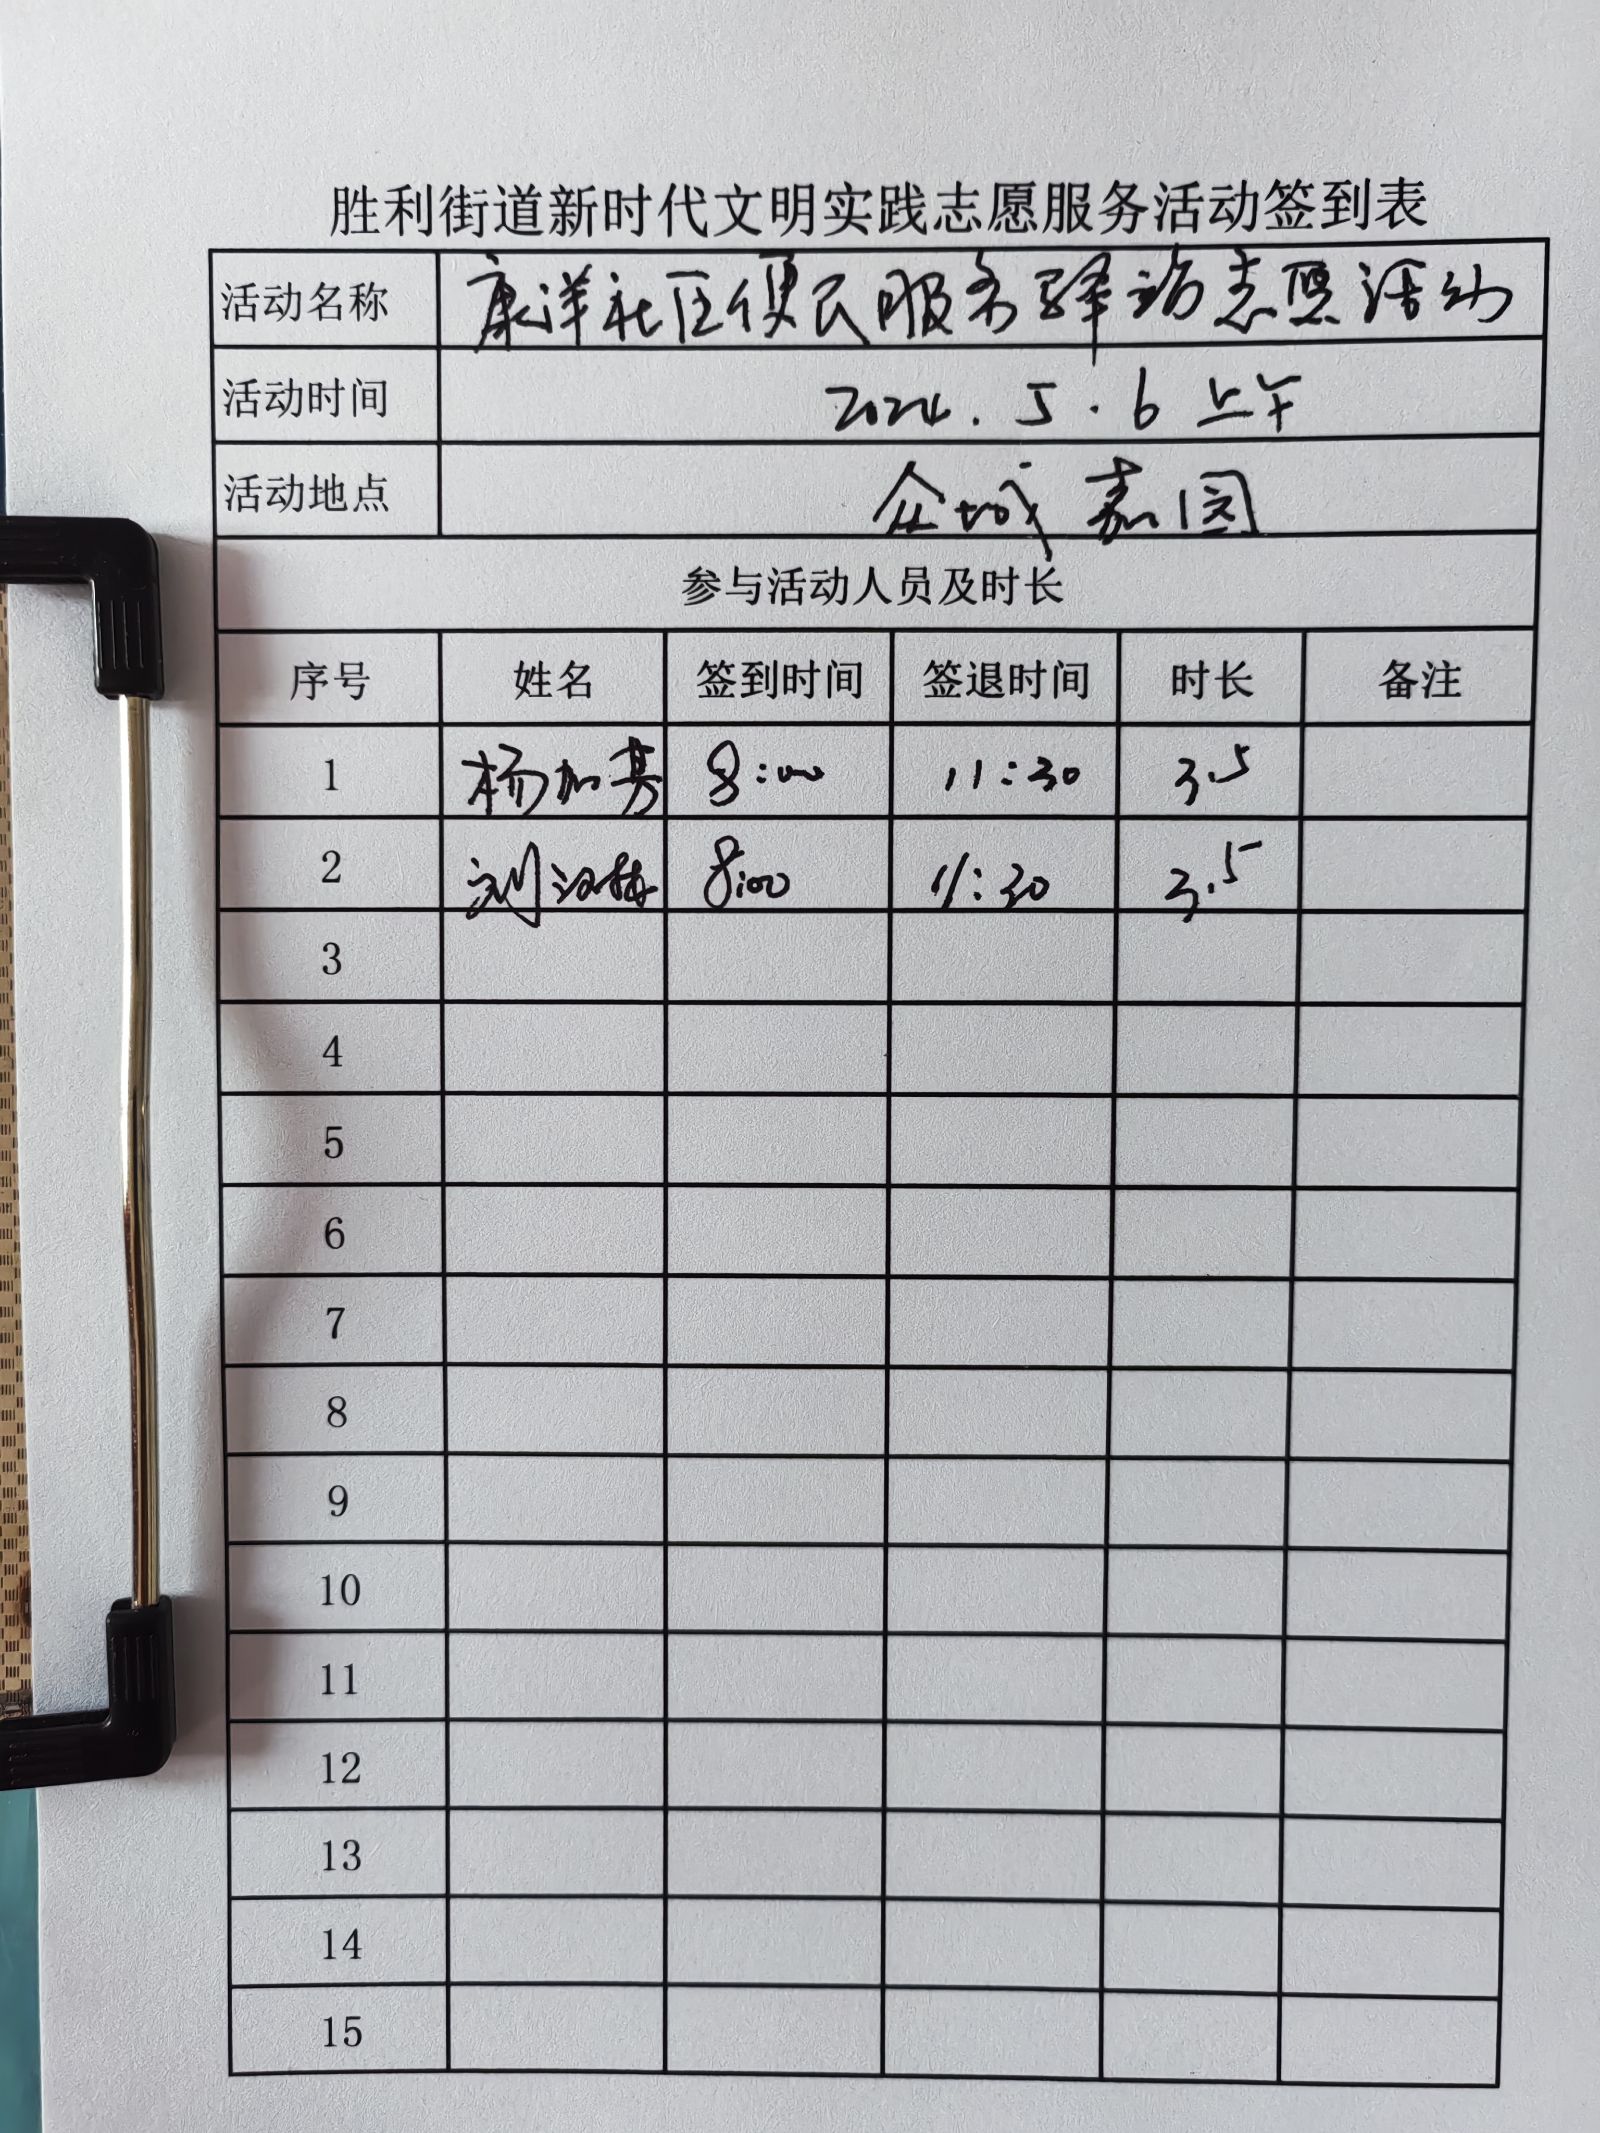 胜利街道新时代文明实践志愿服务活动签到表
活动名称 康洋社区便民服务驿站志愿活动
活动时间 2024.5.6上午
活动地点 众城嘉园
参与活动人员及时长
序号 姓名 签到时间 签退时间 时长 备注
1 杨加 8:00 11:30 3.5
2 刘汉林 8:00 11:30 3.5
3
4
5
6
7
8
9
10
11
12
13
14
15